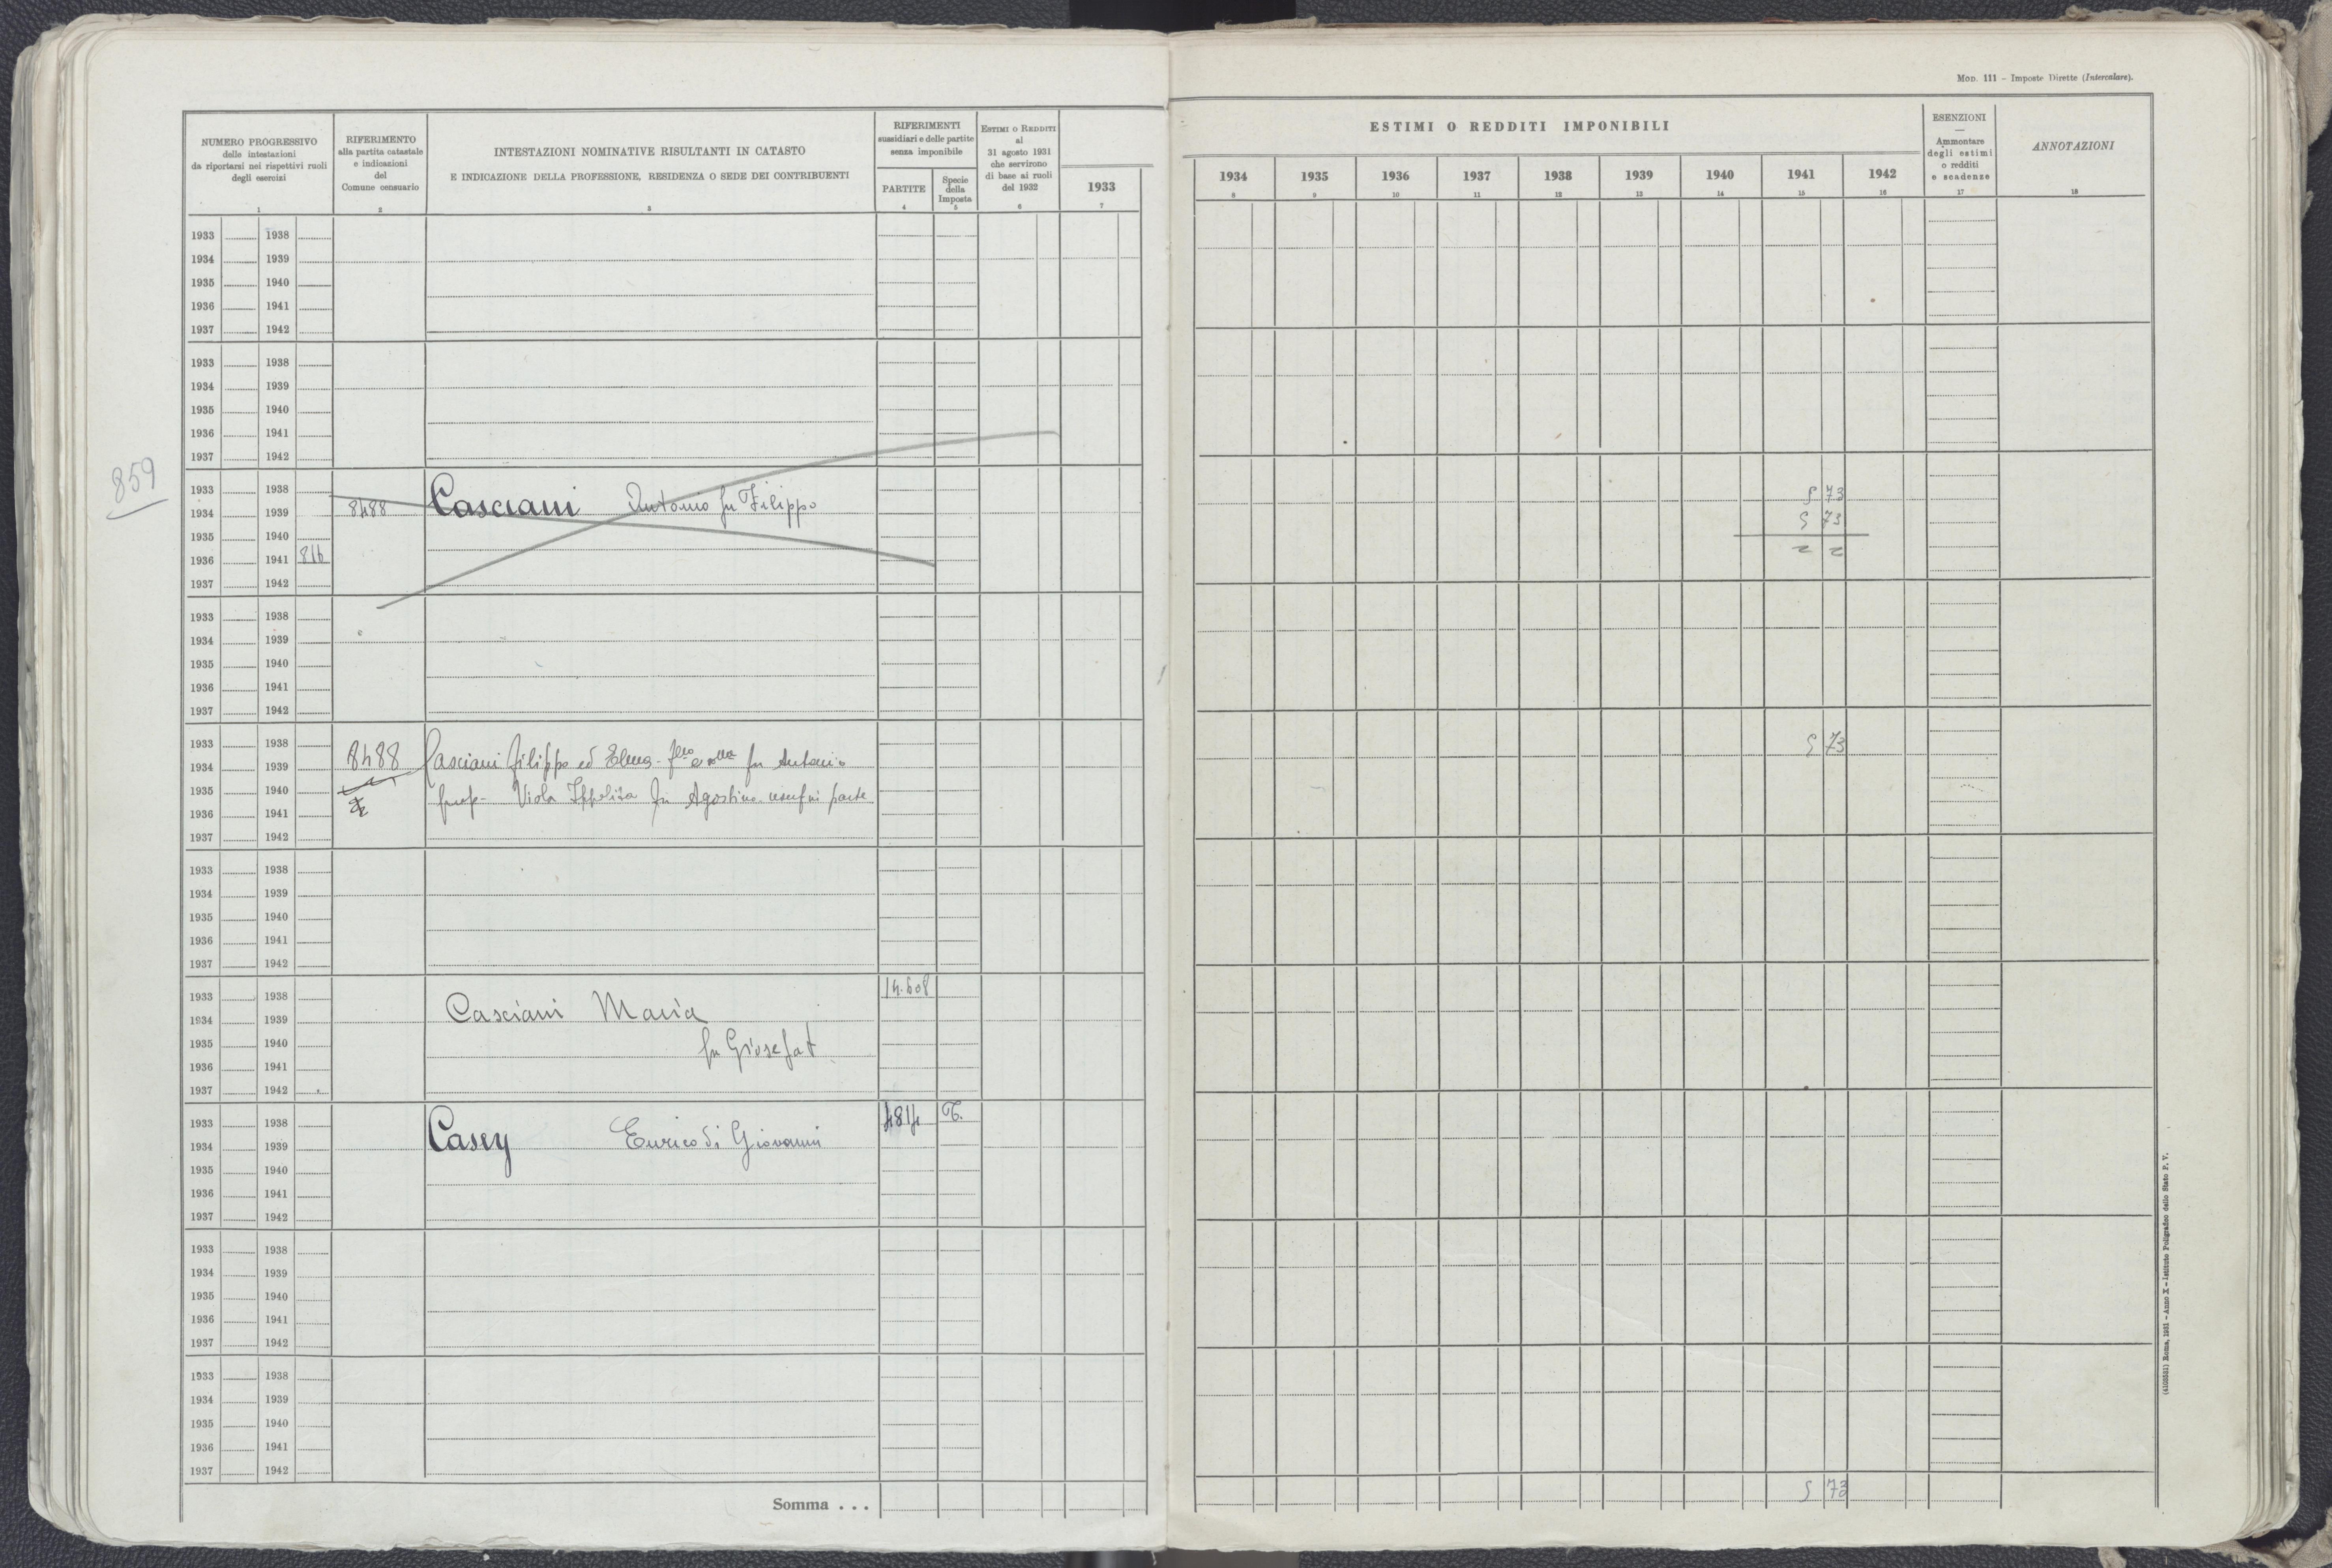 MOD. 111 - Imposte Dirette (Intercalare).
NUMERO PROGRESSIVO
delle intestazioni
da riportarsi nei rispettivi ruoli
degli esercizi
1
RIFERIMENTO
alla partita catastale
e indicazioni
del
Comune censuario
2
INTESTAZIONI NOMINATIVE RISULTANTI IN CATASTO
E INDICAZIONE DELLA PROFESSIONE, RESIDENZA O SEDE DEI CONTRIBUENTI
3
RIFERIMENTI
sussidiari e delle partite
senza imponibile
PARTITE
4
Specie
della
Imposta
5
ESTIMI O REDDITI
al
31 agosto 1931
che servirono
di base ai ruoli
del 1932
6
1933
7
ESTIMI O REDDITI IMPONIBILI
1934 1935 1936 1937 1938 1939 1940 1941 1942
8 9 10 11 12 13 14 15 16
ESENZIONI
—
Ammontare
degli estimi
o redditi
e scadenze
17
ANNOTAZIONI
18
1933 1938
1934 1939
1935 1940
1936 1941
1937 1942
1933 1938
1934 1939
1935 1940
1936 1941
1937 1942
859
1933 1938 5 73
1934 1939 8488 Casciani Antonio fu Filippo
1935 1940 5 73
1936 1941 816
1937 1942
1933 1938
1934 1939
1935 1940
1936 1941
1937 1942
1933 1938 5 73
1934 1939 8488 Casciani Filippo ed fu Antonio
1935 1940 prop- Viola Ippolita fu Agostino usufrui parte
1936 1941
1937 1942
1933 1938
1934 1939
1935 1940
1936 1941
1937 1942
1933 1938 14.608
1934 1939 Casciani Maria
1935 1940 fu Giosefat
1936 1941
1937 1942
1933 1938 4814 T.
1934 1939 Casey Enrico di Giovanni
1935 1940
1936 1941
1937 1942
1933 1938
1934 1939
1935 1940
1936 1941
1937 1942
1933 1938
1934 1939
1935 1940
1936 1941
1937 1942
Somma . . . 5 73
(4102531) Roma, 1931 - Anno X - Istituto Poligrafico dello Stato P. V.